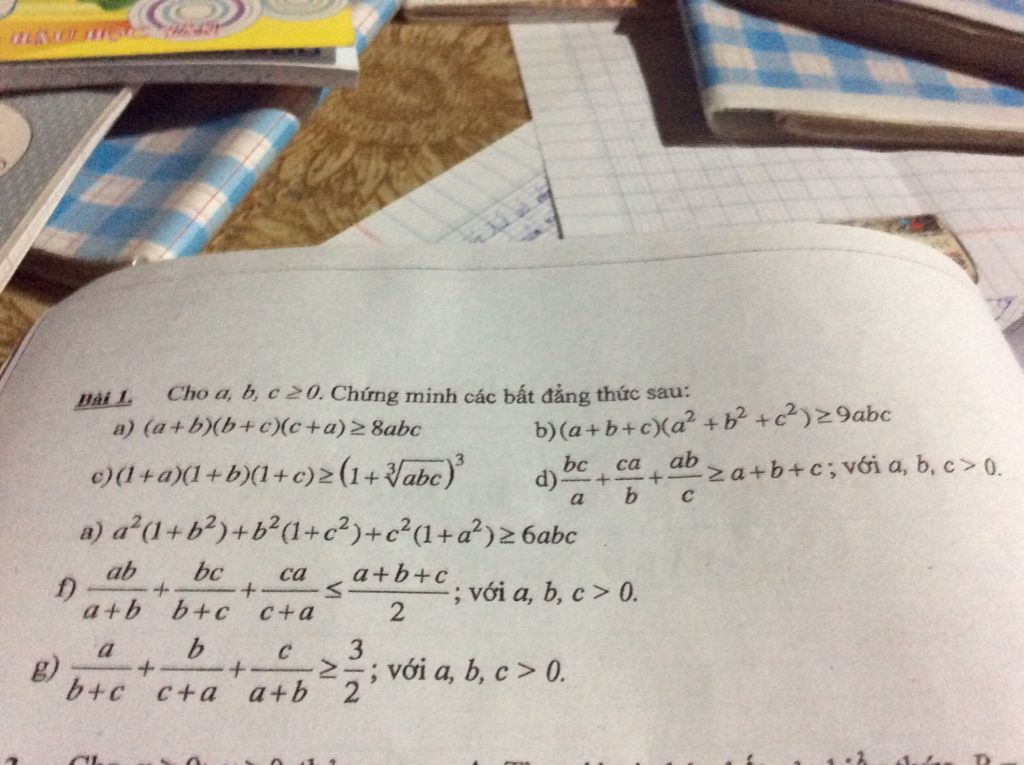 Bài 1. Cho a, b, c ≥ 0. Chứng minh các bất đẳng thức sau:
a) (a+b)(b+c)(c+a) ≥ 8abc b) (a+b+c)(a² + b² + c²) ≥ 9abc
c) (1+a)(1+b)(1+c) ≥ (1+∛abc)³ d) bc/a + ca/b + ab/c ≥ a+b+c; với a, b, c > 0.
a) a²(1+b²)+b²(1+c²)+c²(1+a²) ≥ 6abc
f) ab/(a+b) + bc/(b+c) + ca/(c+a) ≤ (a+b+c)/2; với a, b, c > 0.
g) a/(b+c) + b/(c+a) + c/(a+b) ≥ 3/2; với a, b, c > 0.